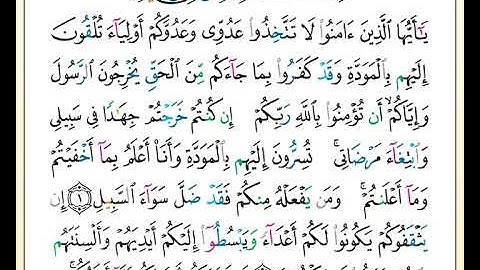 يَـٰٓأَيُّهَا ٱلَّذِينَ ءَامَنُوا۟ لَا تَتَّخِذُوا۟ عَدُوِّى وَعَدُوَّكُمْ أَوْلِيَآءَ تُلْقُونَ
إِلَيْهِم بِٱلْمَوَدَّةِ وَقَدْ كَفَرُوا۟ بِمَا جَآءَكُم مِّنَ ٱلْحَقِّ يُخْرِجُونَ ٱلرَّسُولَ
وَإِيَّاكُمْ ۙ أَن تُؤْمِنُوا۟ بِٱللَّهِ رَبِّكُمْ إِن كُنتُمْ خَرَجْتُمْ جِهَـٰدًا فِى سَبِيلِى
وَٱبْتِغَآءَ مَرْضَاتِى ۚ تُسِرُّونَ إِلَيْهِم بِٱلْمَوَدَّةِ وَأَنَا۠ أَعْلَمُ بِمَآ أَخْفَيْتُمْ
وَمَآ أَعْلَنتُمْ ۚ وَمَن يَفْعَلْهُ مِنكُمْ فَقَدْ ضَلَّ سَوَآءَ ٱلسَّبِيلِ ١ إِن
يَثْقَفُوكُمْ يَكُونُوا۟ لَكُمْ أَعْدَآءً وَيَبْسُطُوٓا۟ إِلَيْكُمْ أَيْدِيَهُمْ وَأَلْسِنَتَهُم